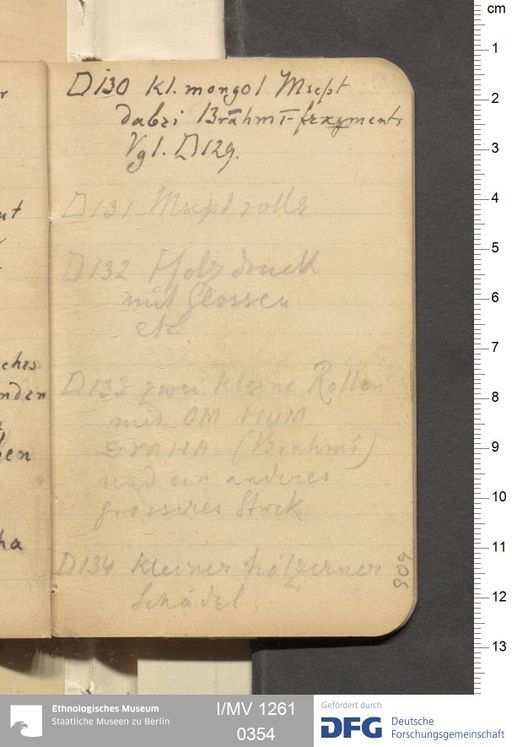 D 130 Kl. mongol Mscpt
dabei Brāhmī-fragments
Vgl. D 129.
D 131 Mscpt rolle
D 132 Holzdruck
mit Glossen
etc
D 133 zwei kleine Rollen
mit OM HUM
SVAHA (Brahmī)
und ein anderes
grosseres Stück
D 134 kleiner hölzerner
Schädel.
809
ches
nden
ben
ha
cm
1
2
3
4
5
6
7
8
9
10
11
12
13
Ethnologisches Museum
Staatliche Museen zu Berlin
I/MV 1261
0354
Gefördert durch
DFG Deutsche
Forschungsgemeinschaft